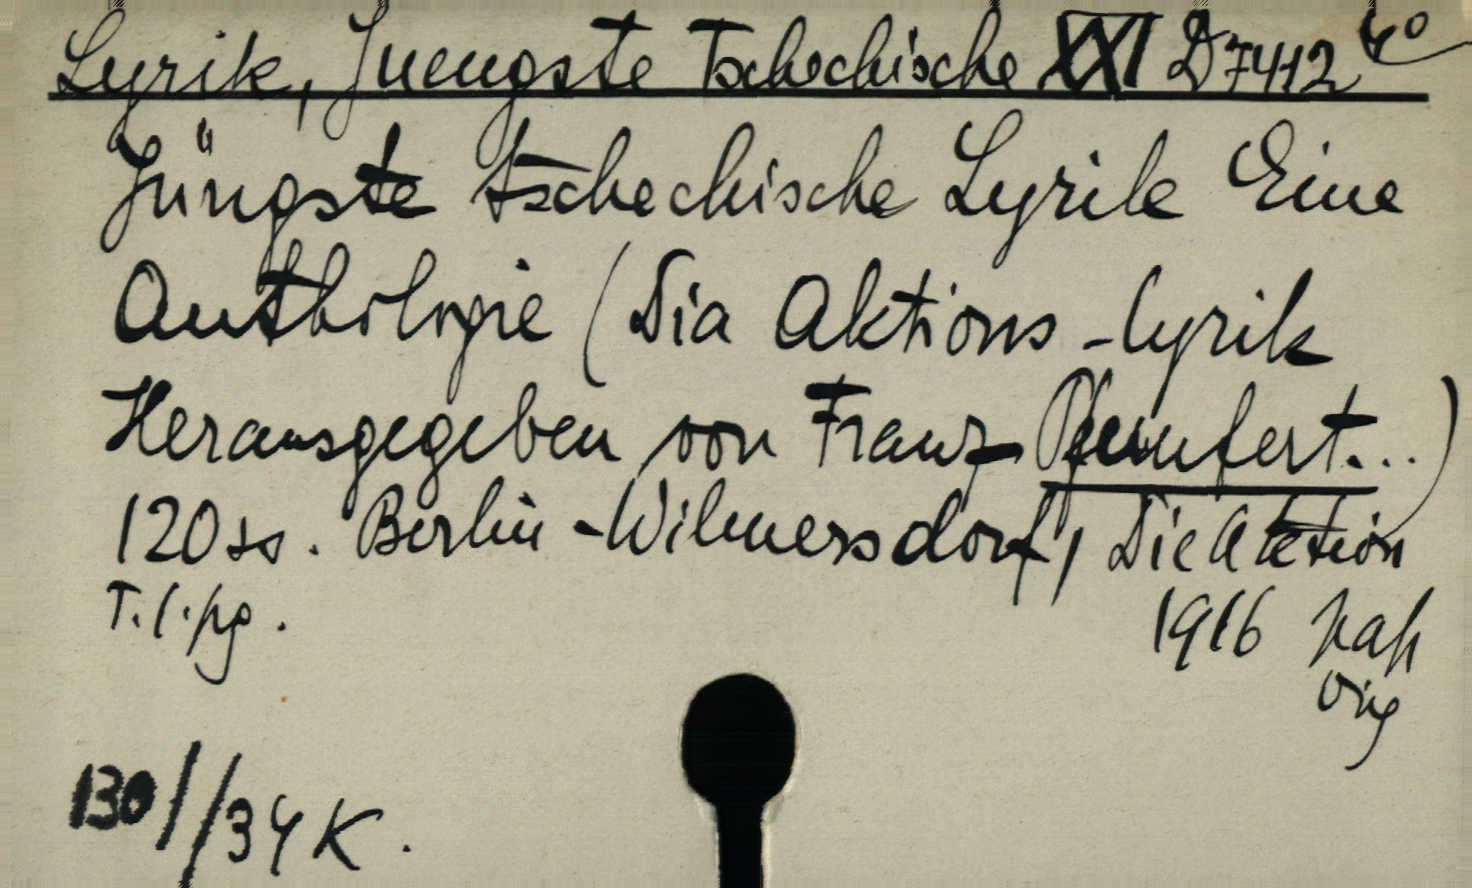 Lyrik, Juengste Tschechische XXI D 7412 4°
Jüngste tschechische Lyrik Eine
Anthologie (Dia Aktions-lyrik
Herausgegeben von Franz Pfemfert...)
120 ss. Berlin-Wilmersdorf, Die Aktion
T. l. pg. 1916
130//34 K.